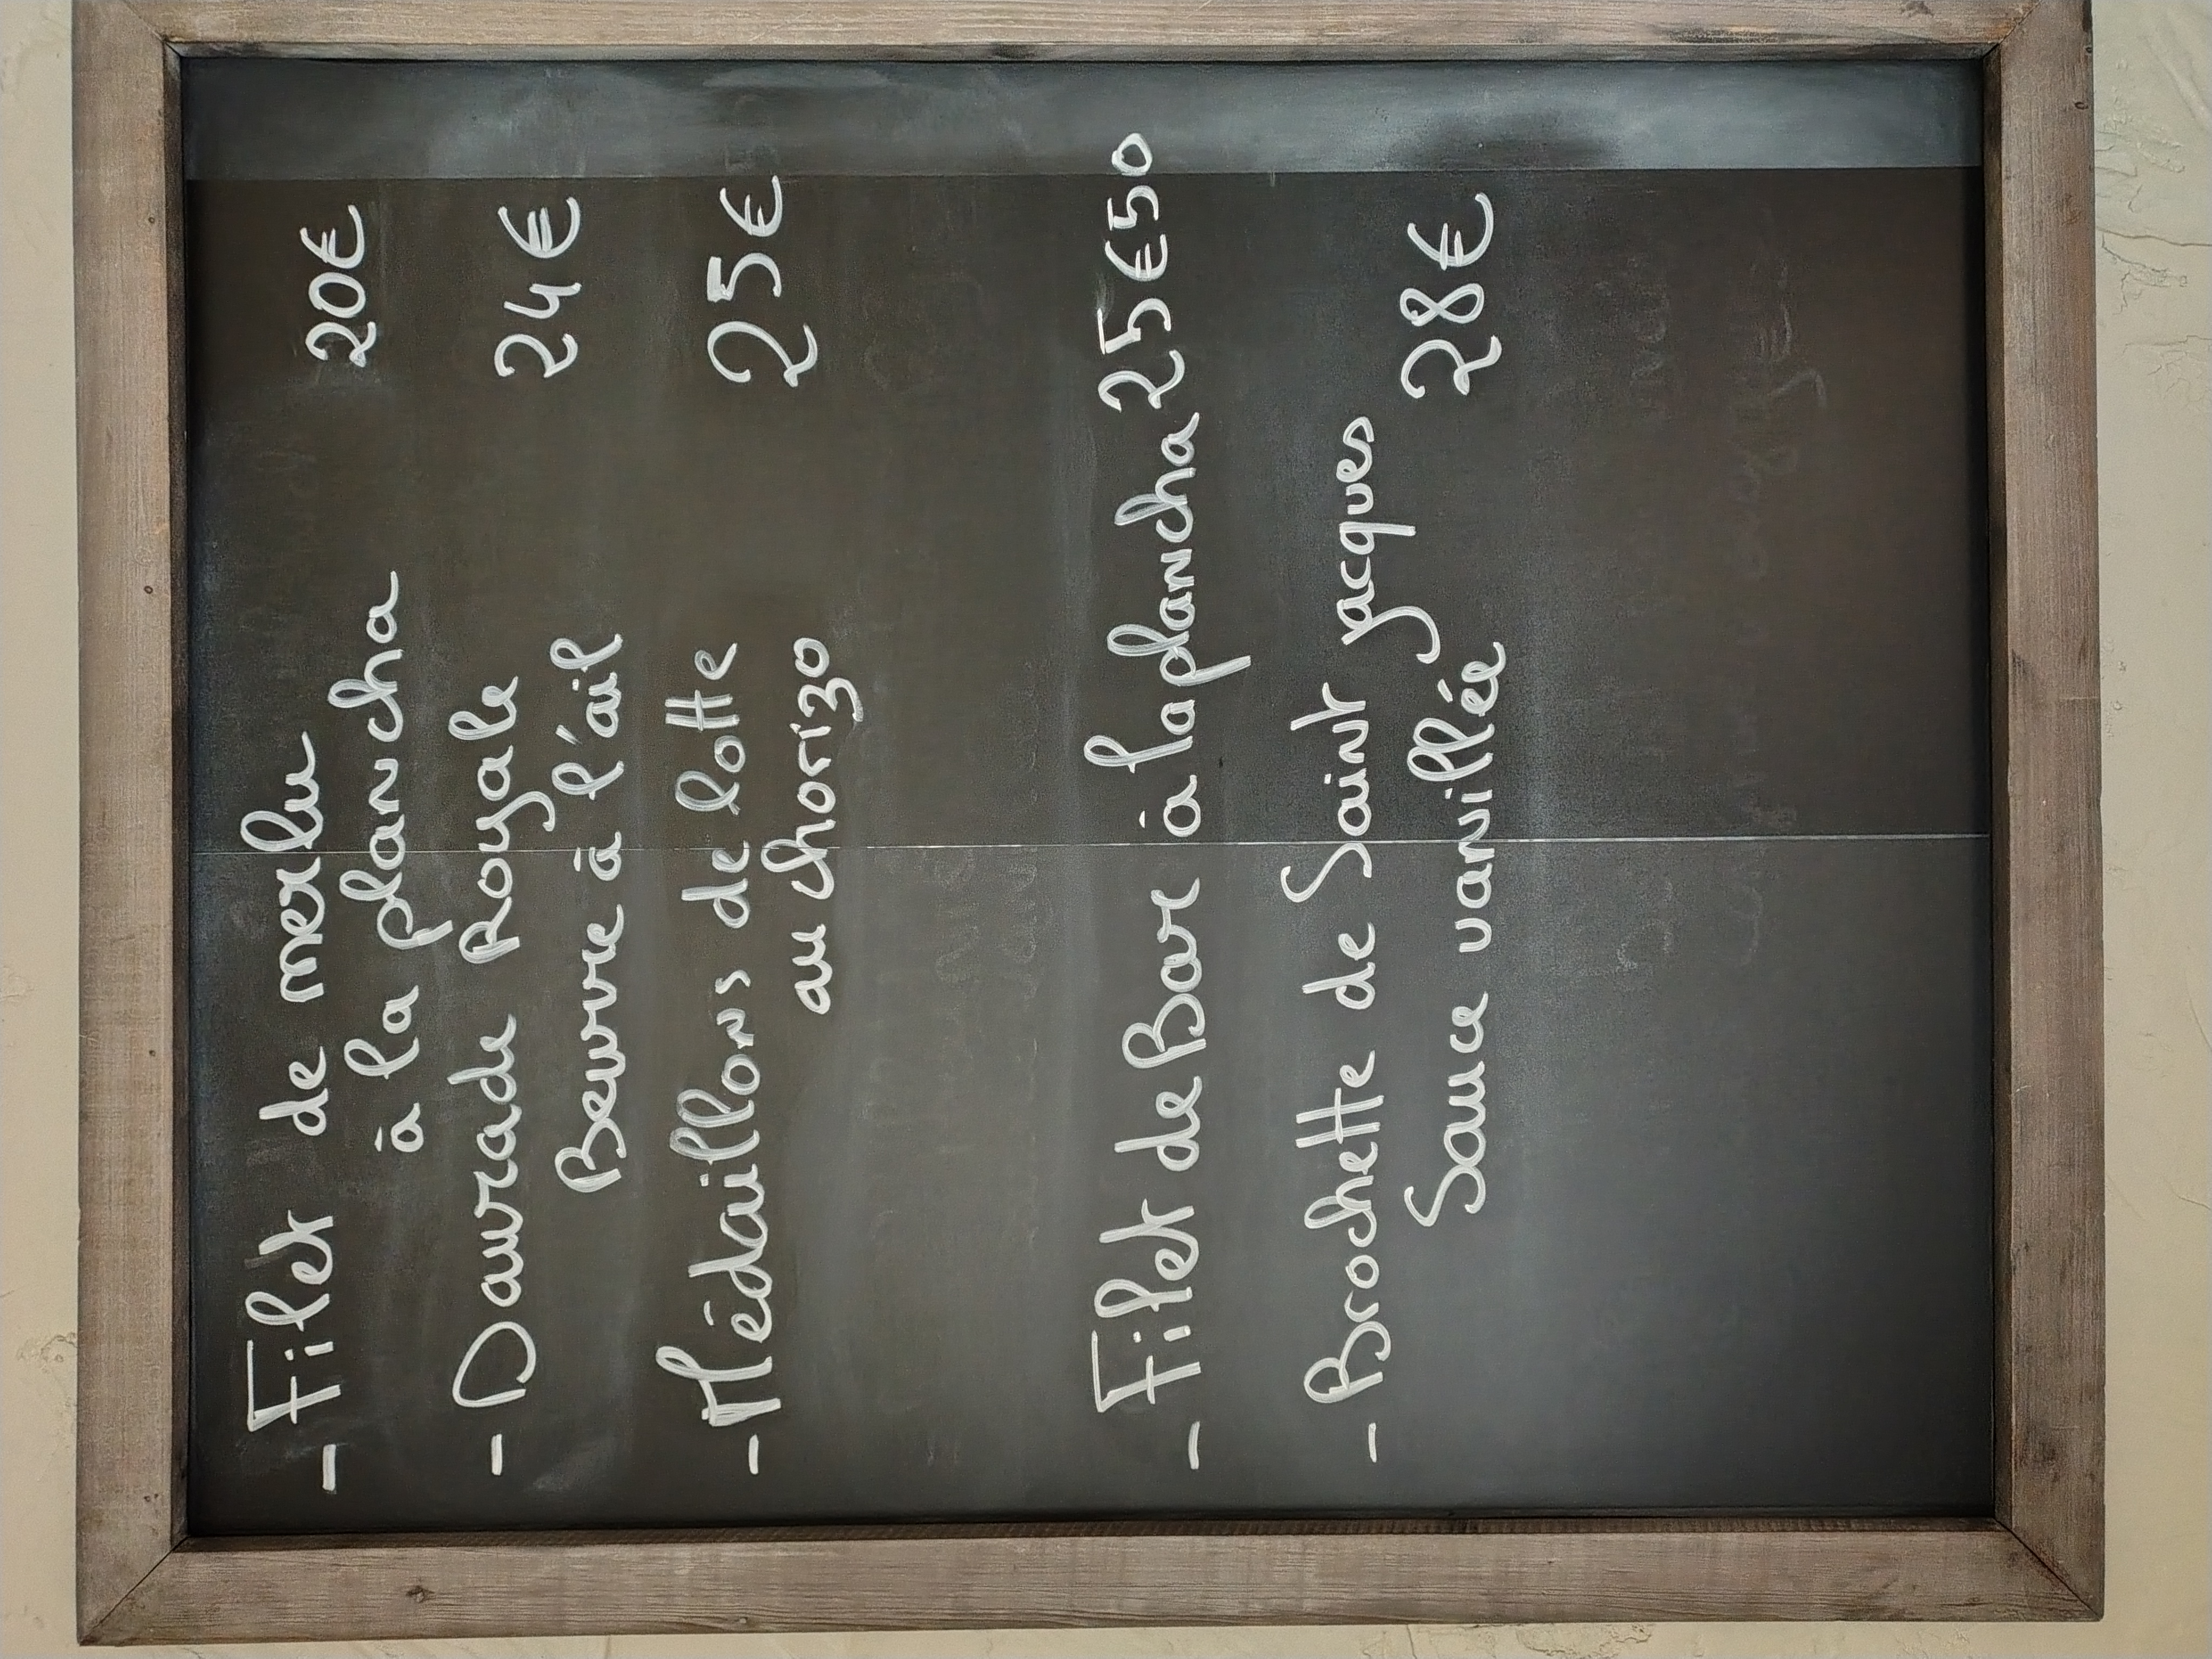 - Filet de merlu
à la plancha 20€
- Daurade Royale 24€
Beurre à l'ail
- Médaillons de lotte 25€
au chorizo
- Filet de Bar à la plancha 25€50
- Brochette de Saint jacques
Sauce vanillée 28€